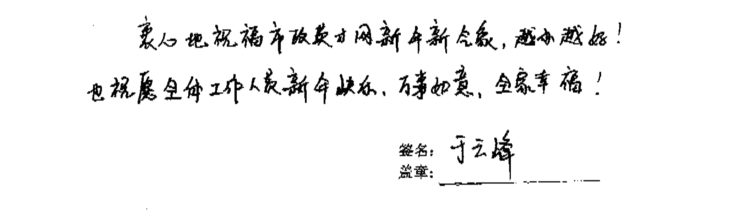 衷心地祝福市政英才网新年新气象，越办越好！
也祝愿全体工作人员新年快乐，万事如意，全家幸福！
签名：于云峰
盖章：